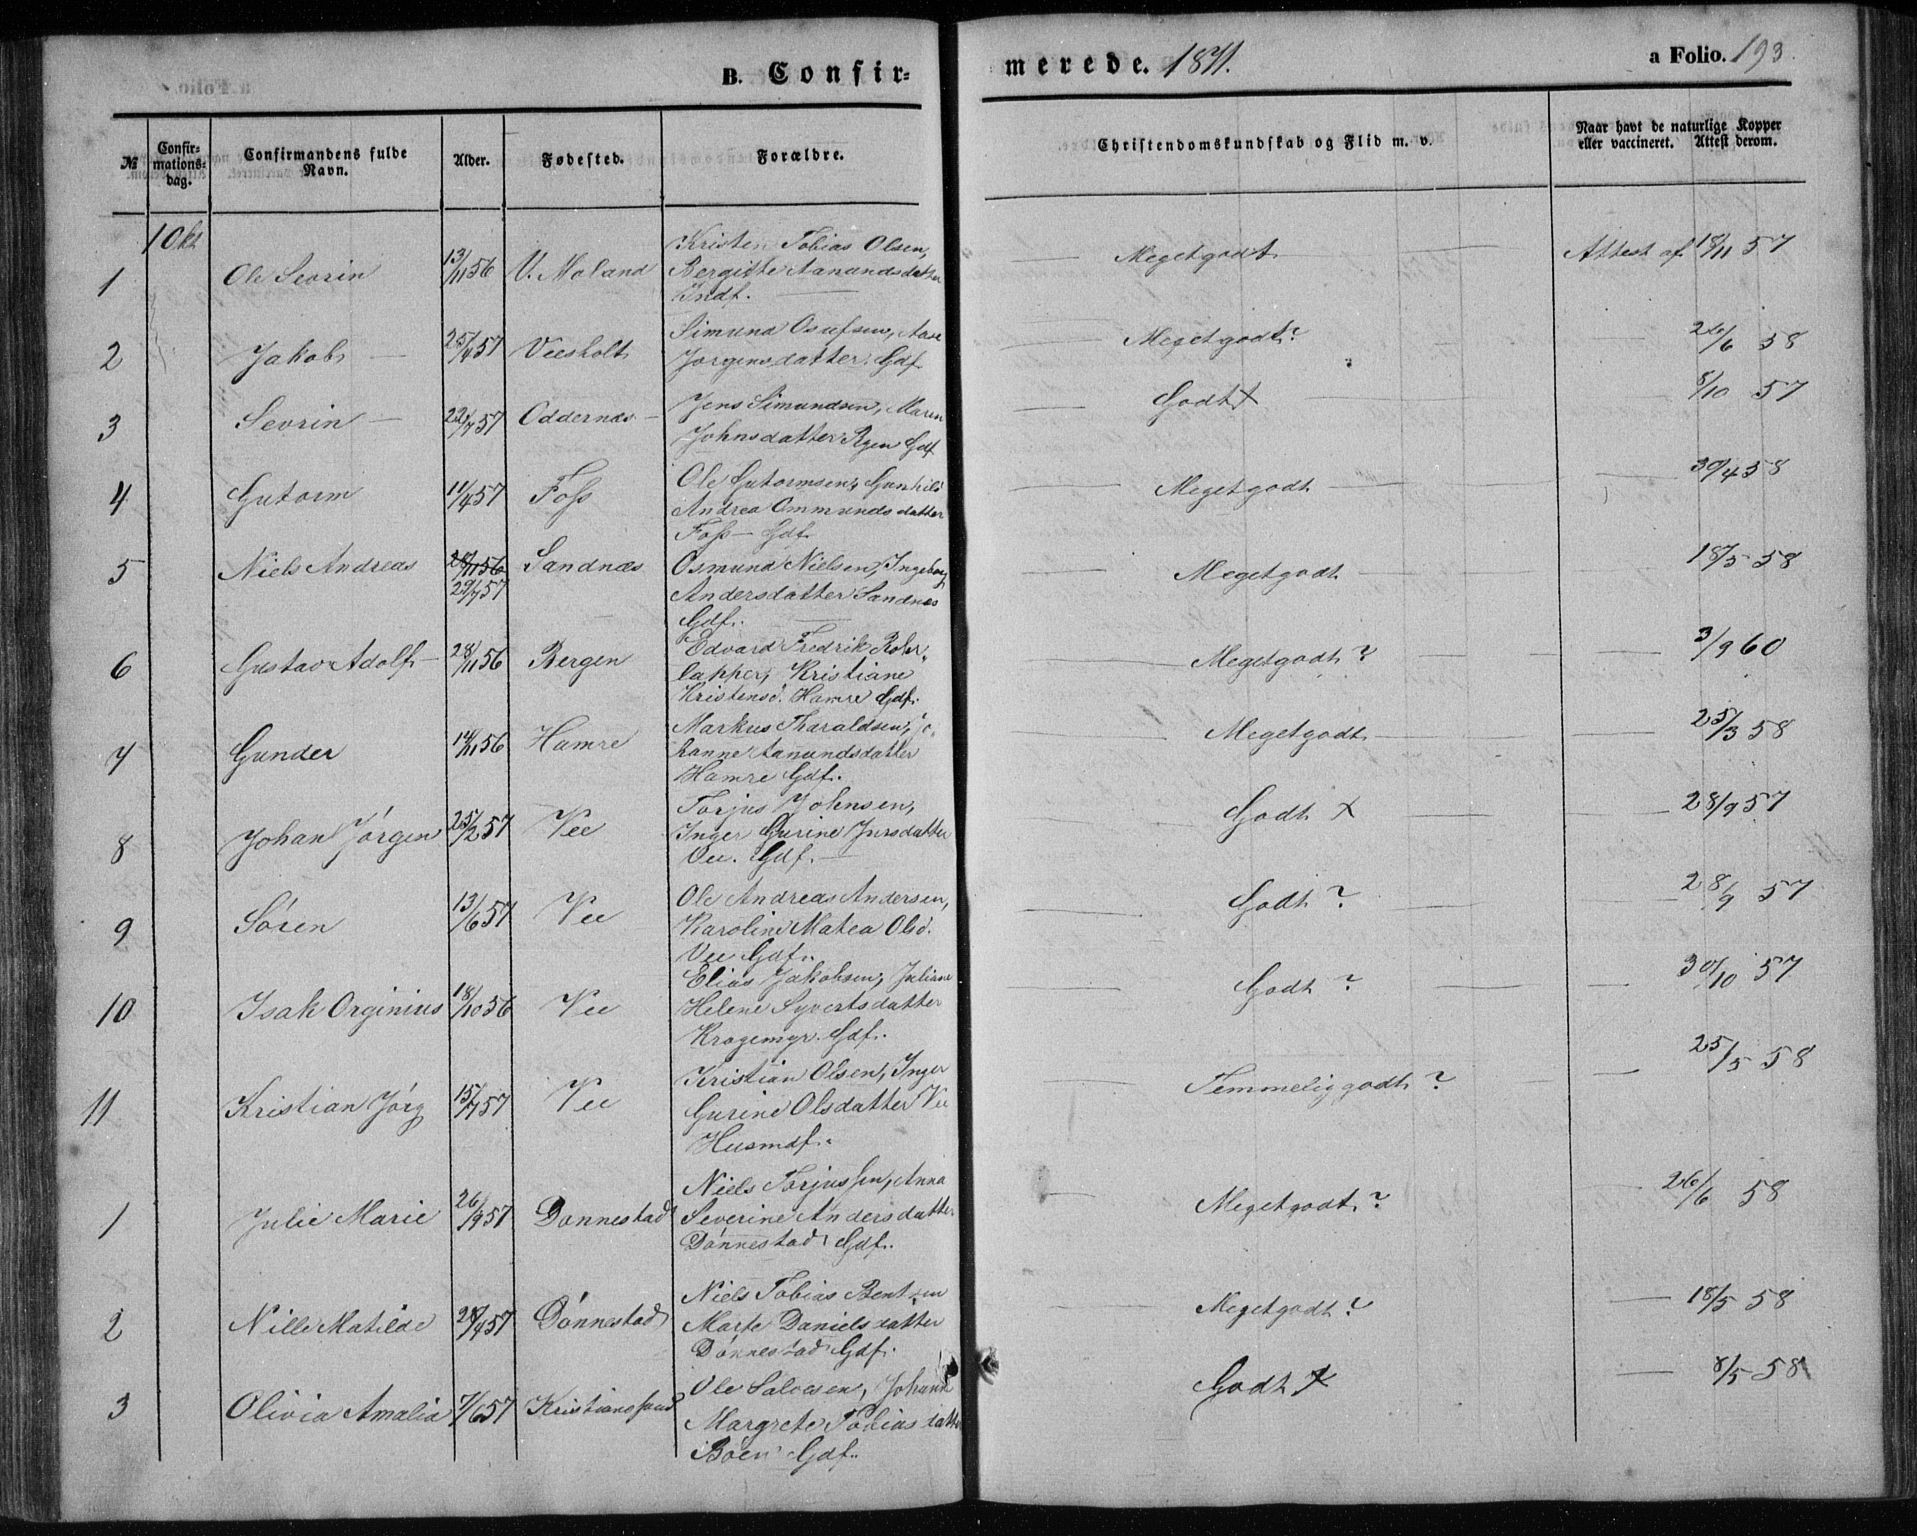 B. Confir-
merede. 1871.
a Folio. 193.
№
Confir-
mations-
dag.
Confirmandens fulde
Navn.
Alder.
Fødested.
Forældre.
Christendomskundskab og Flid m. v.
Naar havt de naturlige Kopper
eller vaccineret. Attest derom.
1 Okt
1 Ole Sevrin 13/11 56 V. Moland Kristen Tobias Olsen,
Bergitte Aanundsdatter
Gdf.
Megetgodt Attest af 18/11 57
2 Jakob 25/4 57 Veesholt Simund Osufsen, Aase
Jørgensdatter Gdf.
Megetgodt? 26/6 58
3 Sevrin 22/7 57 Oddernæs Jens Simundsen, Maren
Johnsdatter Ryen Gdf
Godt X 8/10 57
4 Gutorm 11/4 57 Foss Ole Gutormsen, Gunhild
Andrea Ommundsdatter
Foss Gdf.
Megetgodt 30/4 58
5 Niels Andreas 28/11 56
29/7 57 Sandnæs Osmund Nielsen, Ingeborg
Andersdatter Sandnes
Gdf.
Megetgodt 18/5 58
6 Gustav Adolf 28/11 56 Bergen Edvard Fredrik Rober-
lapper, Kristiane
Kristensd. Hamre Gdf.
Megetgodt? 3/9 60
7 Gunder 14/11 56 Hamre Markus Tharaldsen, Jo-
hanne Aanundsdatter
Hamre Gdf.
Megetgodt 25/3 58
8 Johan Jørgen 25/2 57 Vee Torjus Johnsen,
Inger Gurine Jursdatter
Vee. Gdf.
Godt X 28/9 57
9 Søren 13/6 57 Vee Ole Andreas Andersen,
Karoline Matea Olsd.
Vee Gdf.
Godt? 28/9 57
10 Isak Orginius 18/10 56 Vee Elias Jakobsen, Juliane
Helene Syvertsdatter
Kragemyr Gdf.
Godt? 30/10 57
11 Kristian Jørg 15/7 57 Vee Kristian Olsen, Inger
Gurine Olsdatter Vee
Husmdf.
Temmelig godt? 25/5 58
1 Julie Marie 26/9 57 Donnestad Niels Torjussen, Anna
Severine Andersdatter
Dønnestad Gdf.
Megetgodt? 26/6 58
2 Nille Matilde 28/4 57 Dønnestad Niels Tobias Bentzen
Marte Danielsdatter
Dønnestad Gdf.
Megetgodt? 18/5 58
3 Olivia Amalia 7/6 57 Kristianssand Ole Salvesen, Johann
Margrete Tobiasdatte
Bøen Gdf.
Godt X 8/5 58